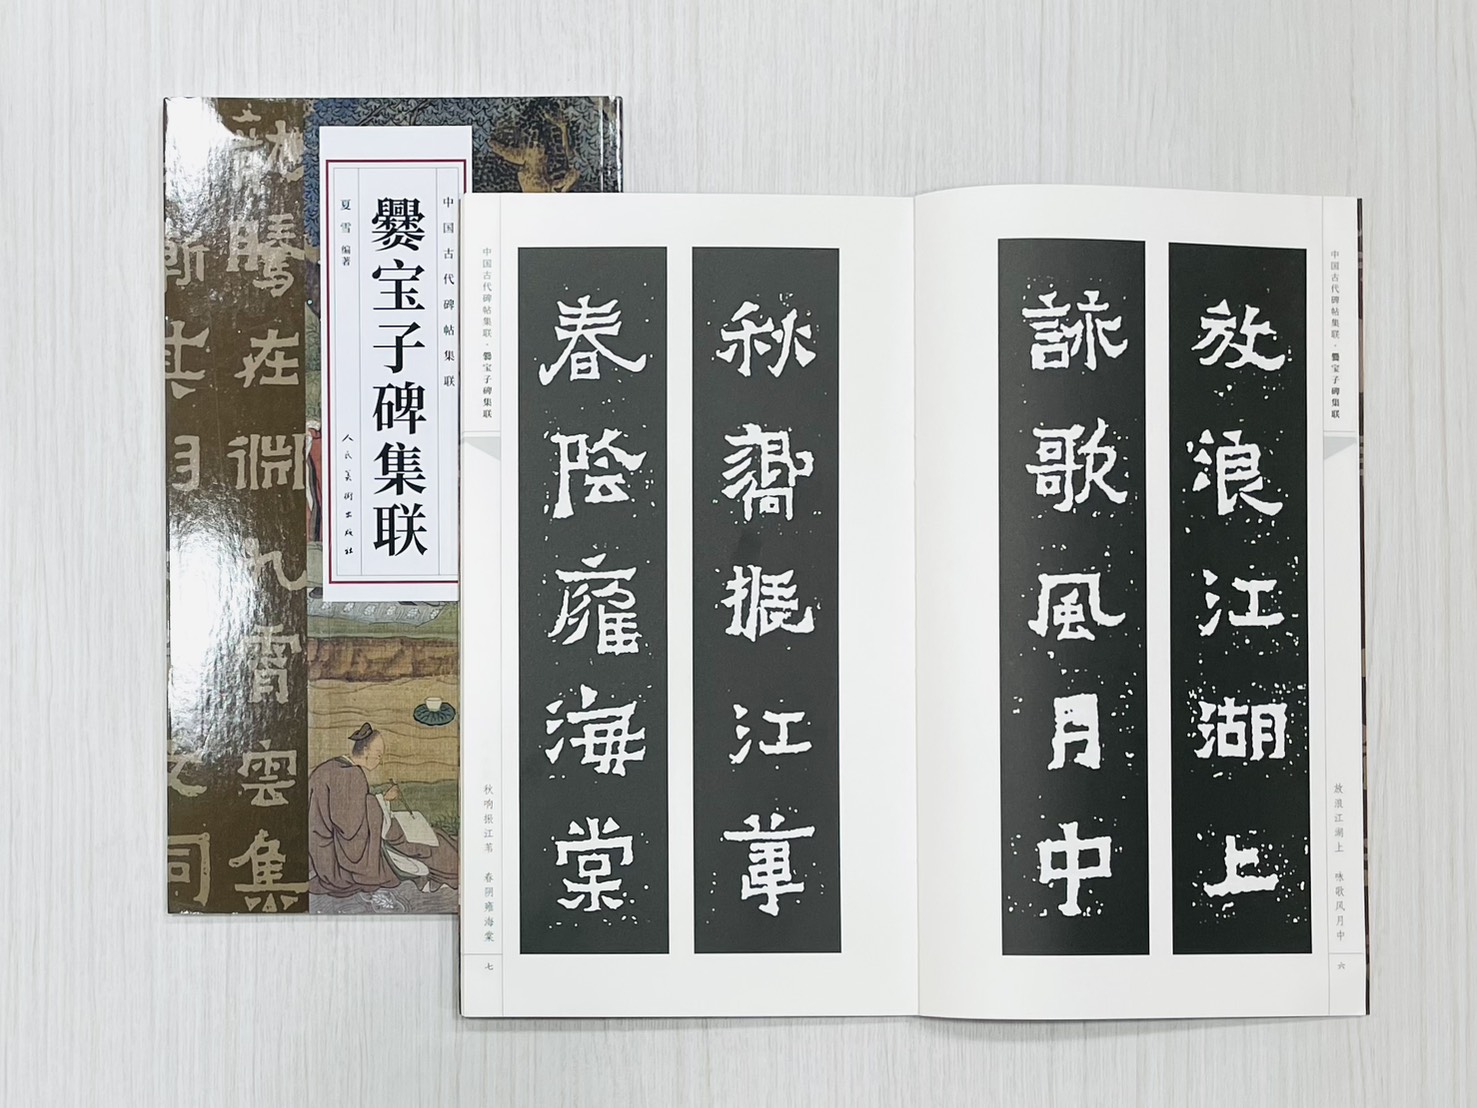 中国古代碑帖集联
爨宝子碑集联
夏雪 编著
人民美術出版社
騰在淵九霄雲集
中国古代碑帖集联·爨宝子碑集联
放浪江湖上
詠歌風月中
放浪江湖上 咏歌风月中
六
秋響振江葦
春陰雍海棠
中国古代碑帖集联·爨宝子碑集联
秋响振江苇 春阴雍海棠
七